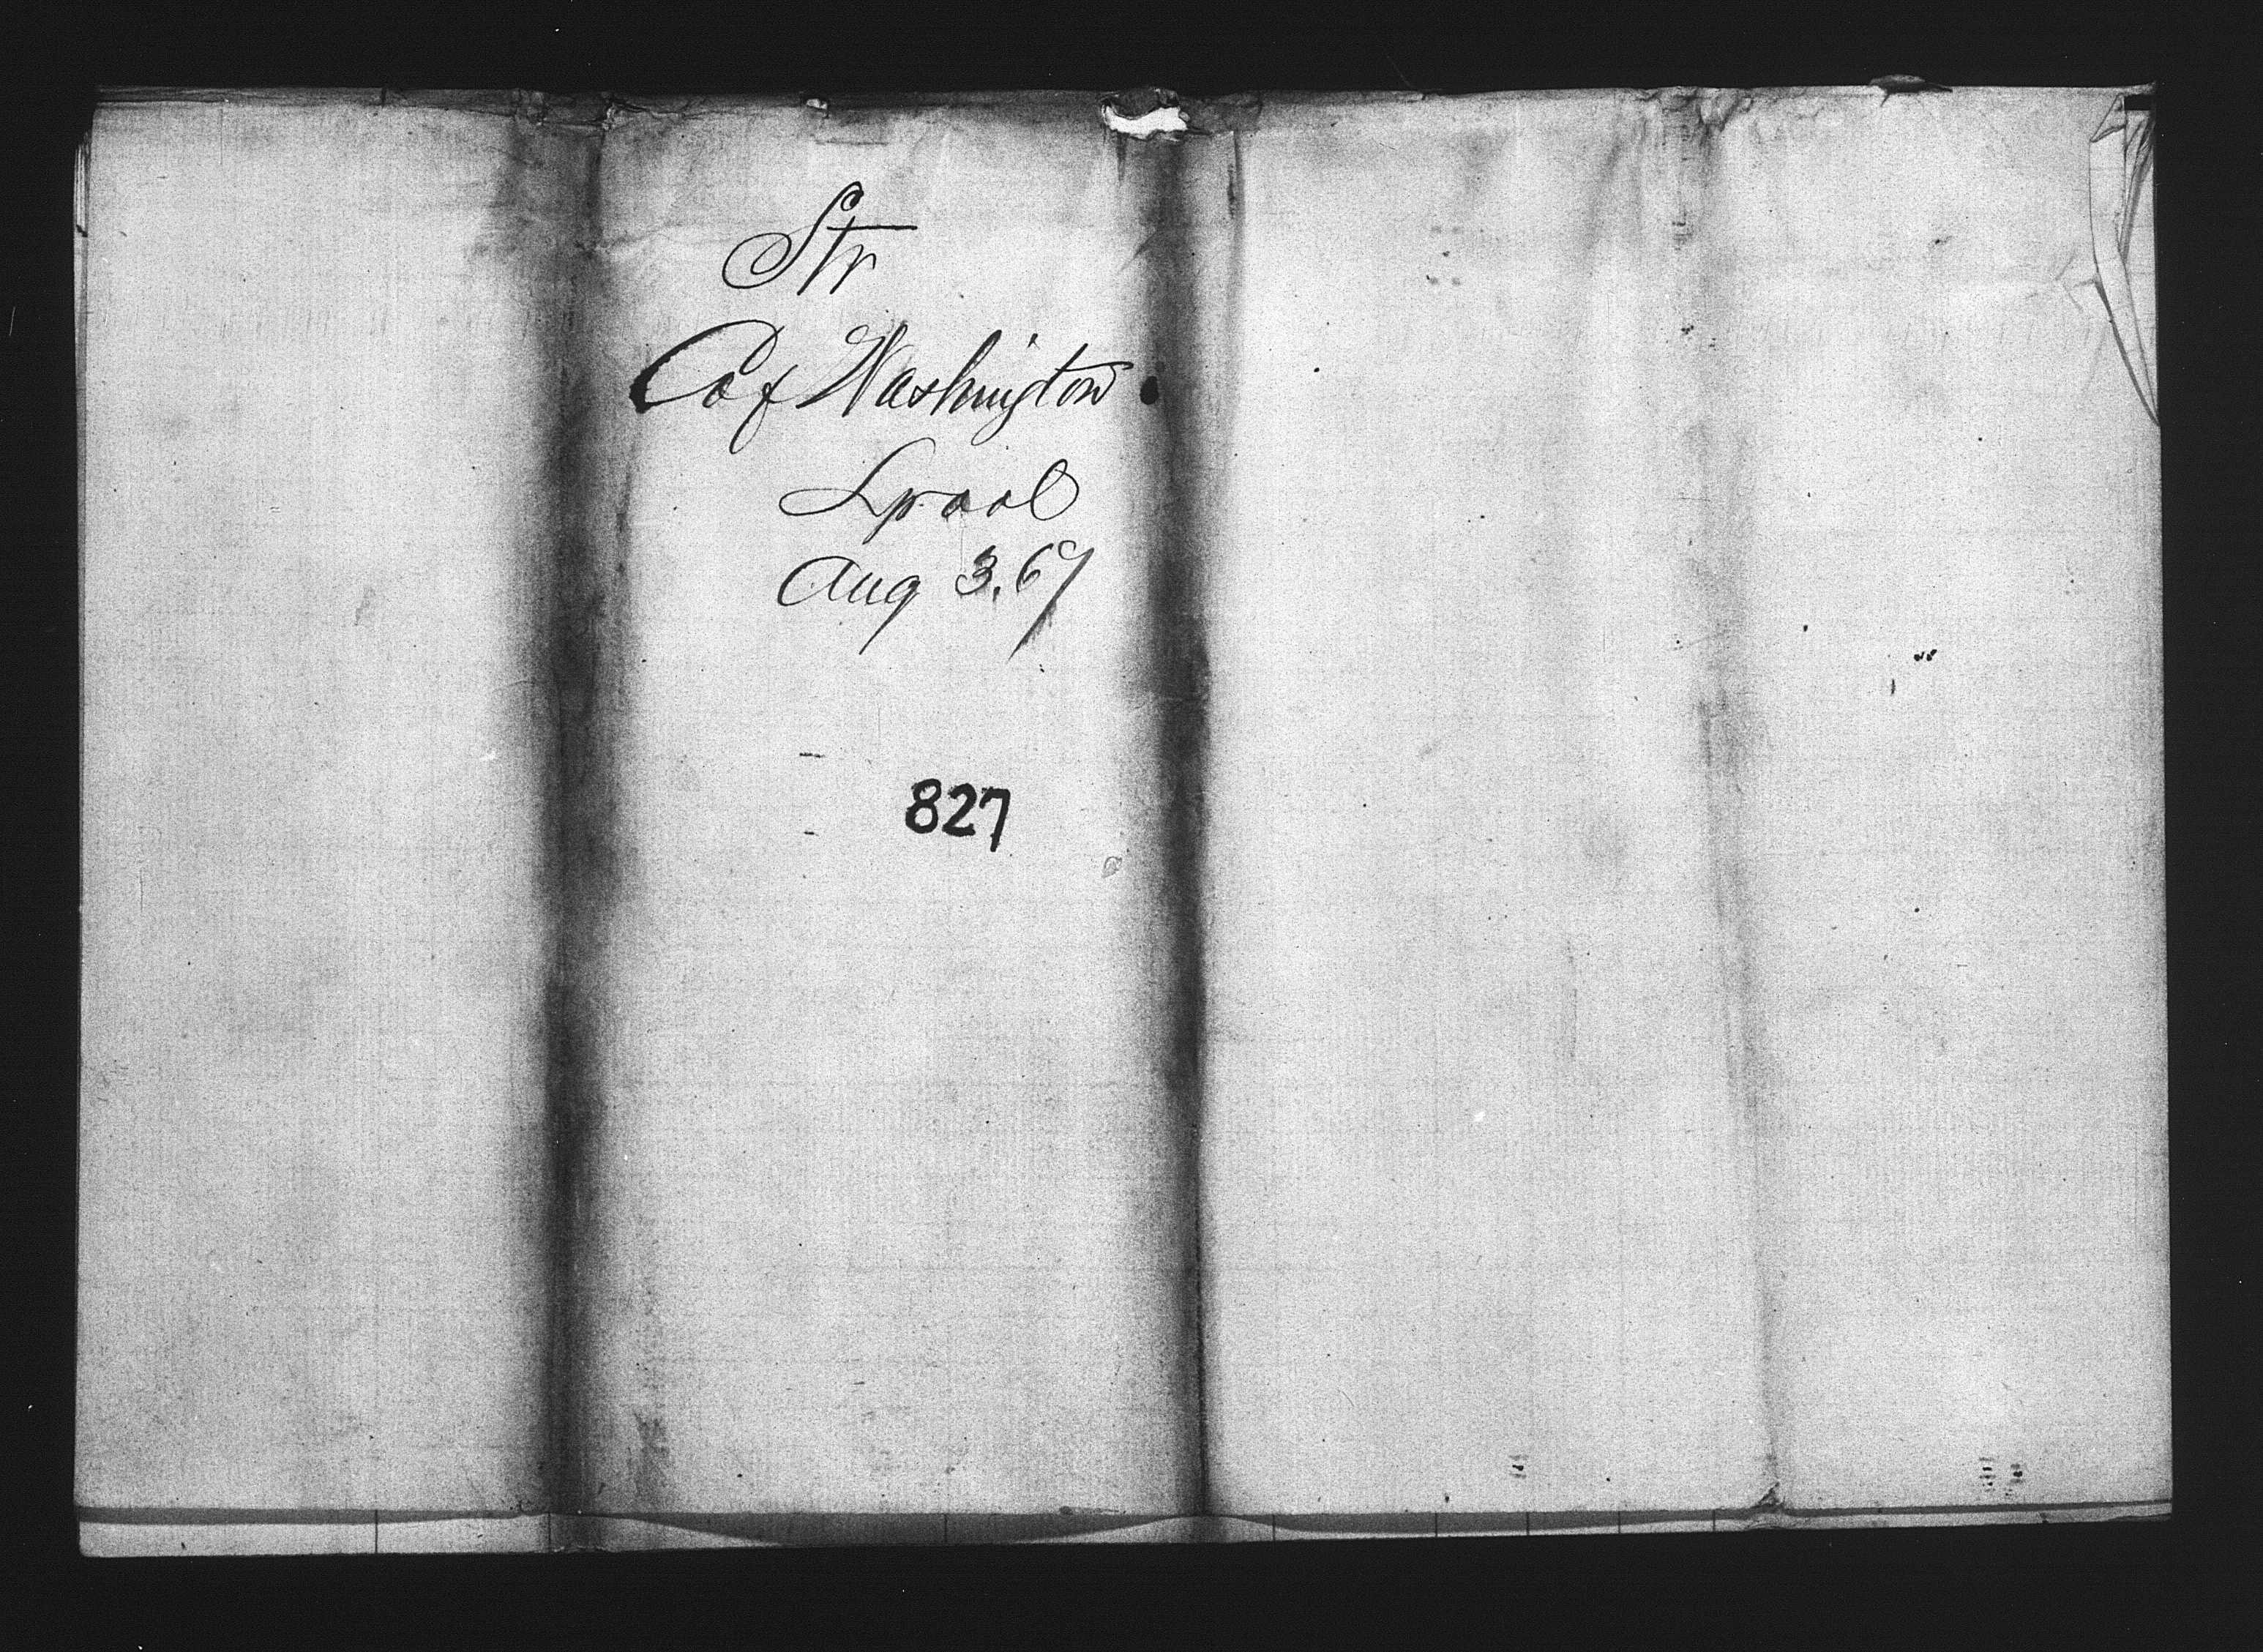 Str
C of Washington
Lpool
Aug 3. 67
827